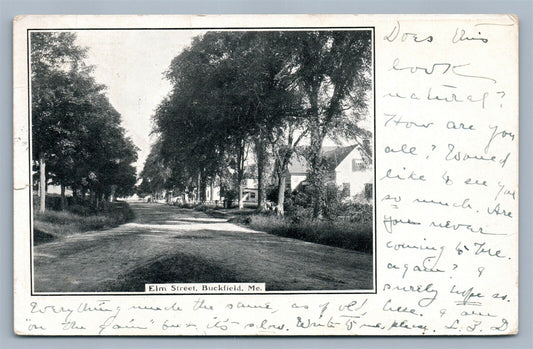 Elm Street, Buckfield, Me.
Does this
look
natural?
How are you
all? Would
like to see you
so much. Are
you never
coming to Me.
again? I
surely hope so.
Everything much the same, as of old, here. I am
"on the gain" but it's slow. Write to me, please. L. F. D